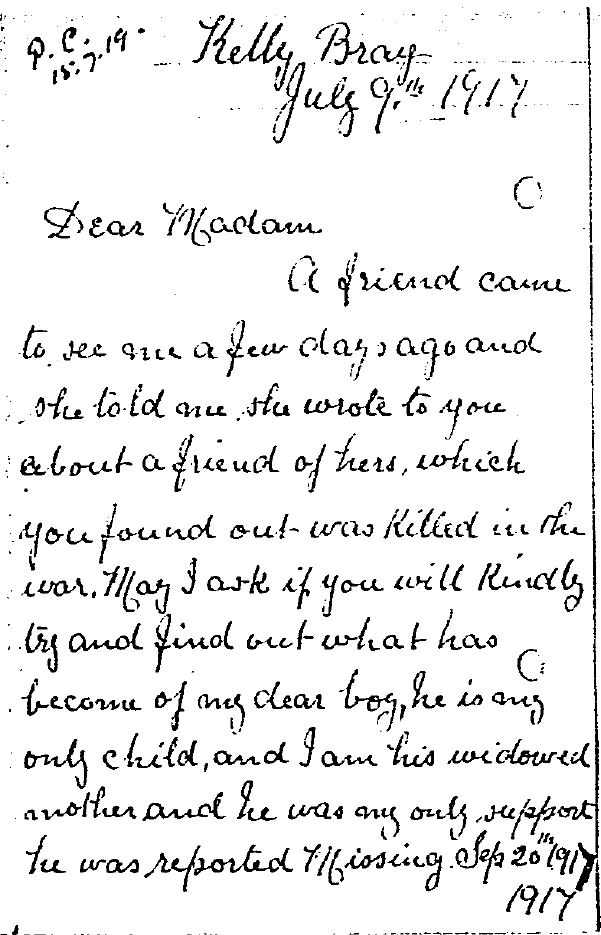 P.C. 19.
15.7.19
Kelly Bray
July 9th 1917
Dear Madam
A friend came
to see me a few days ago and
she told me she wrote to you
about a friend of hers, which
you found out was Killed in the
war. May I ask if you will Kindly
try and find out what has
become of my dear boy, he is my
only child, and I am his widowed
mother and he was my only support
he was reported Missing Sep 20th 1917
1917